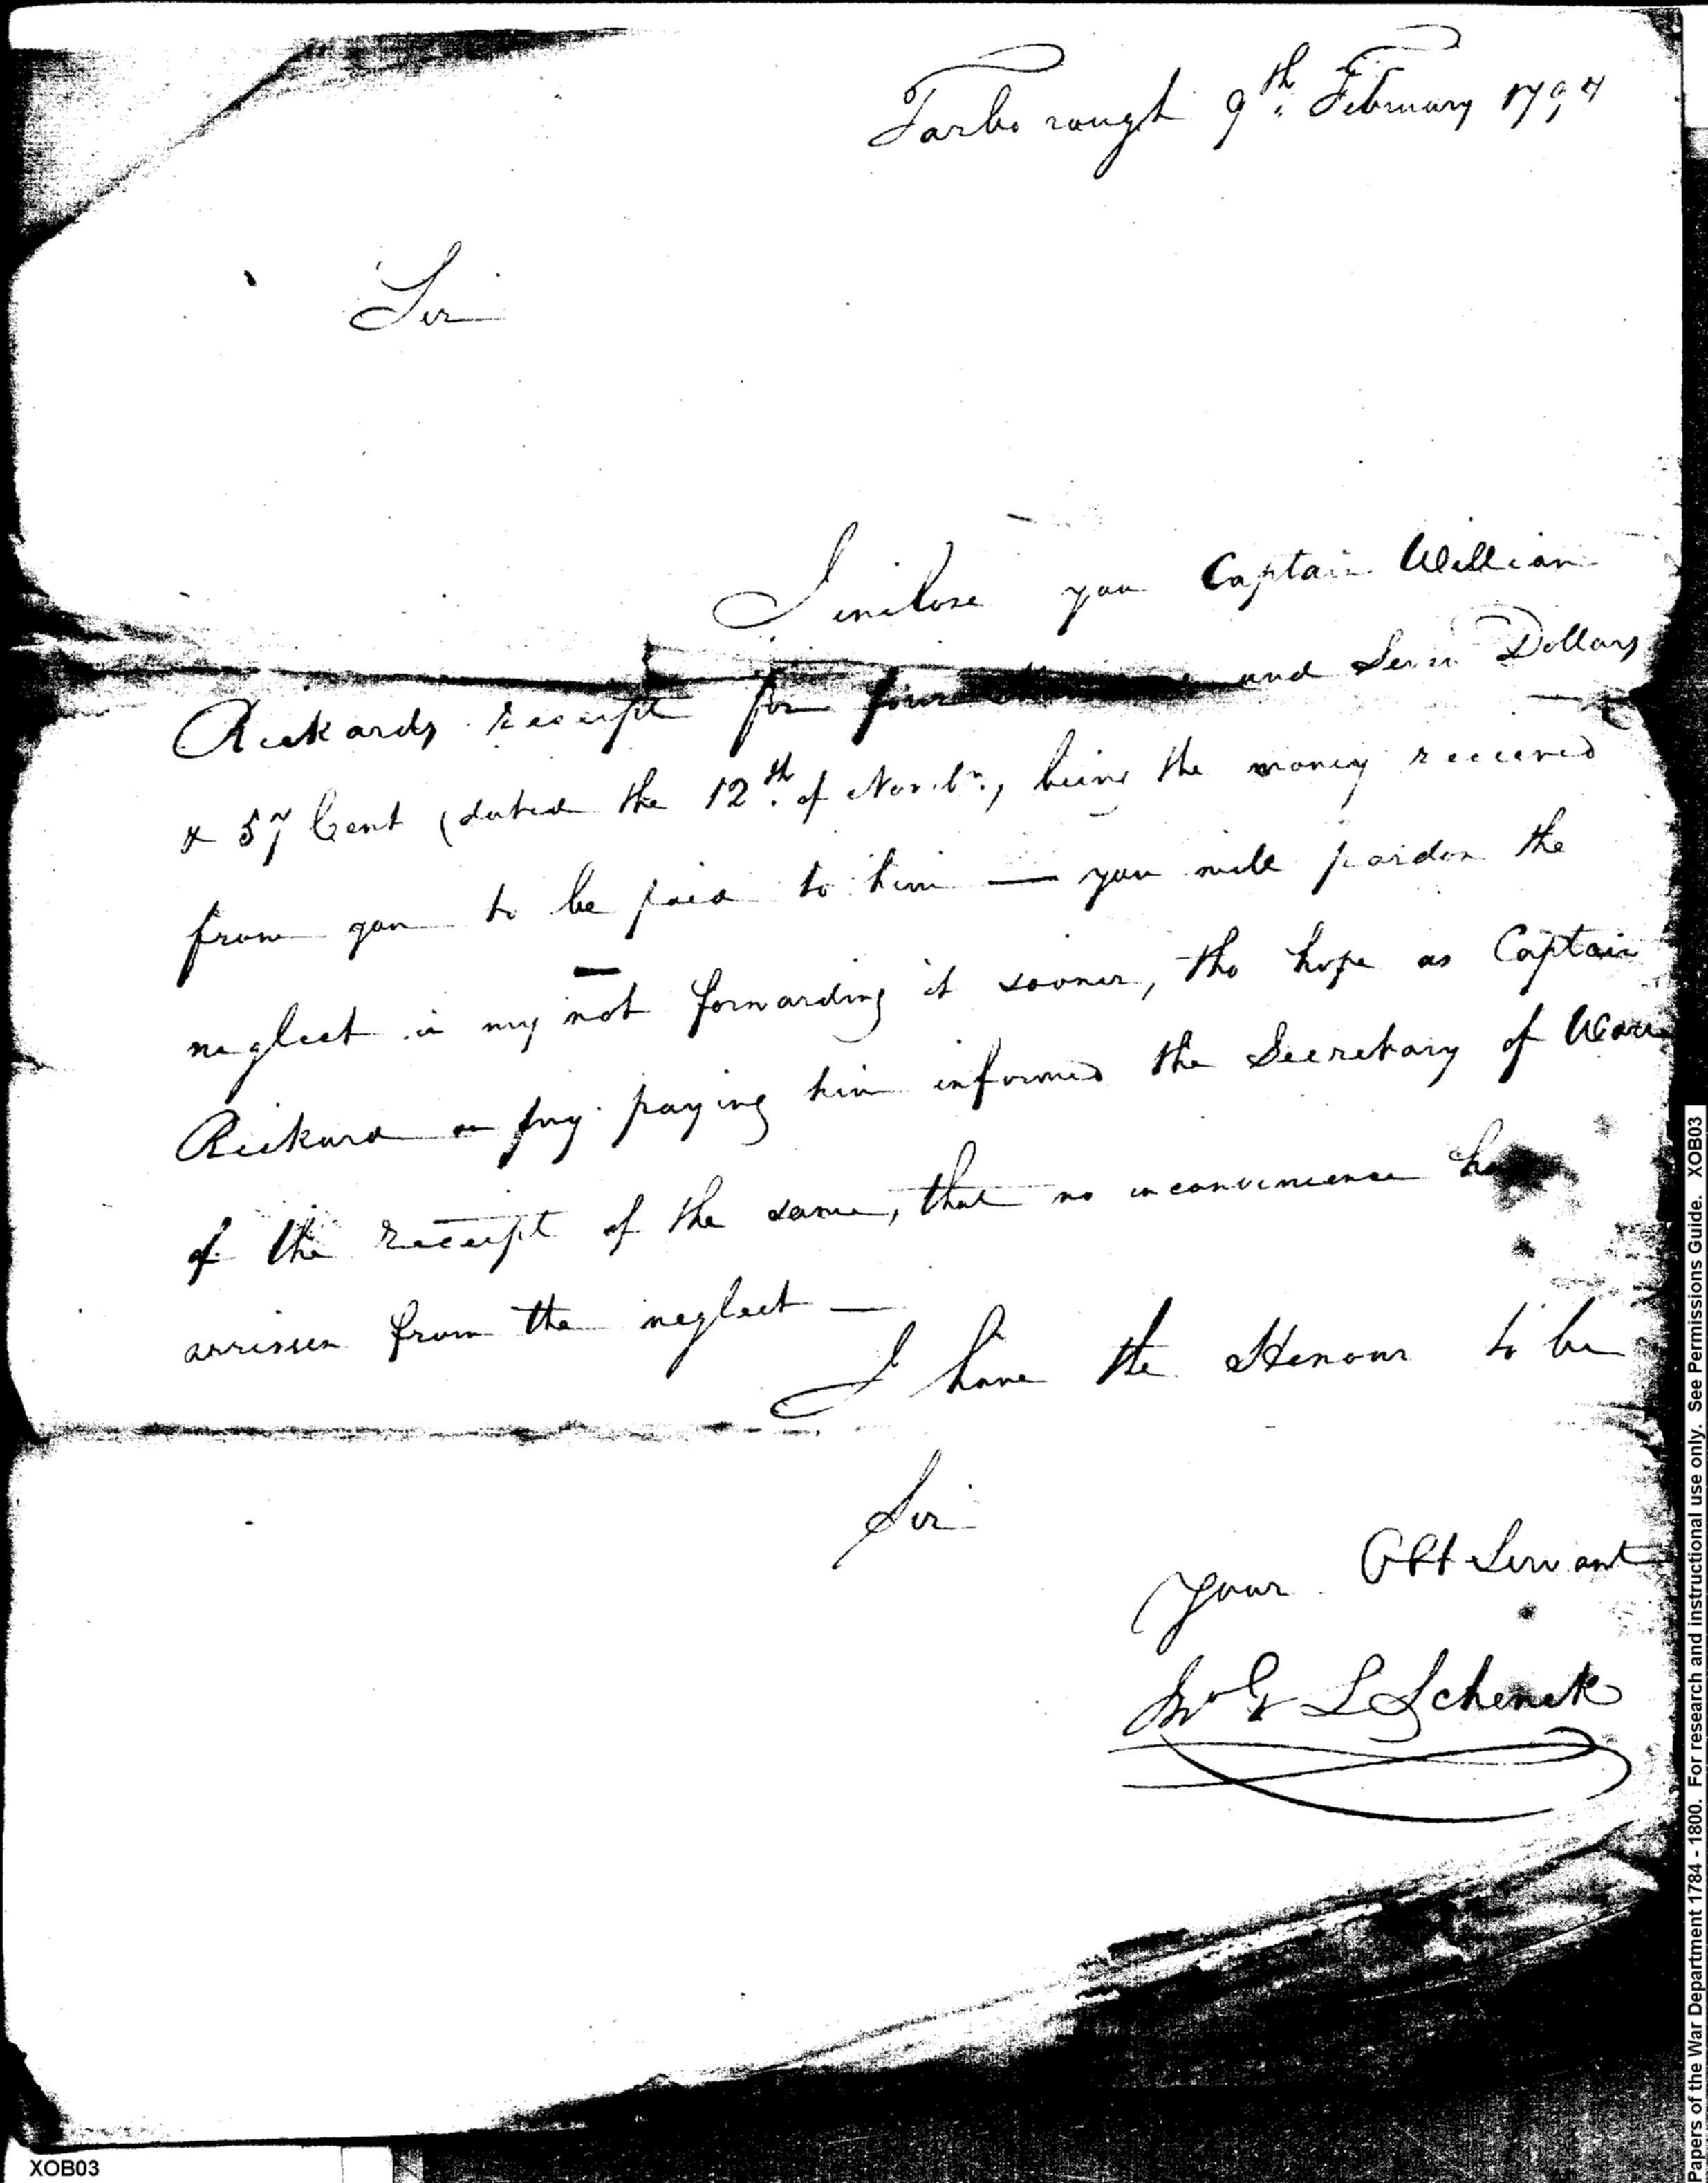 Tarborough 9th February 1794
Sir
I inclose you Captain William
Rickards receipt for four and Seven Dollars
& 57 Cent (dated the 12th of Novbr, being the money received
from you to be paid to him — you will pardon the
neglect in my not forwarding it sooner, tho hope as Captain
Rickard on my paying him informed the Secretary of Warr
of the receipt of the same, that no inconvenience
arrisen from the neglect —
I have the Honour to be
Sir
your Obt Servant
L Schenck
XOB03
Papers of the War Department 1784 - 1800. For research and instructional use only. See Permissions Guide. XOB03